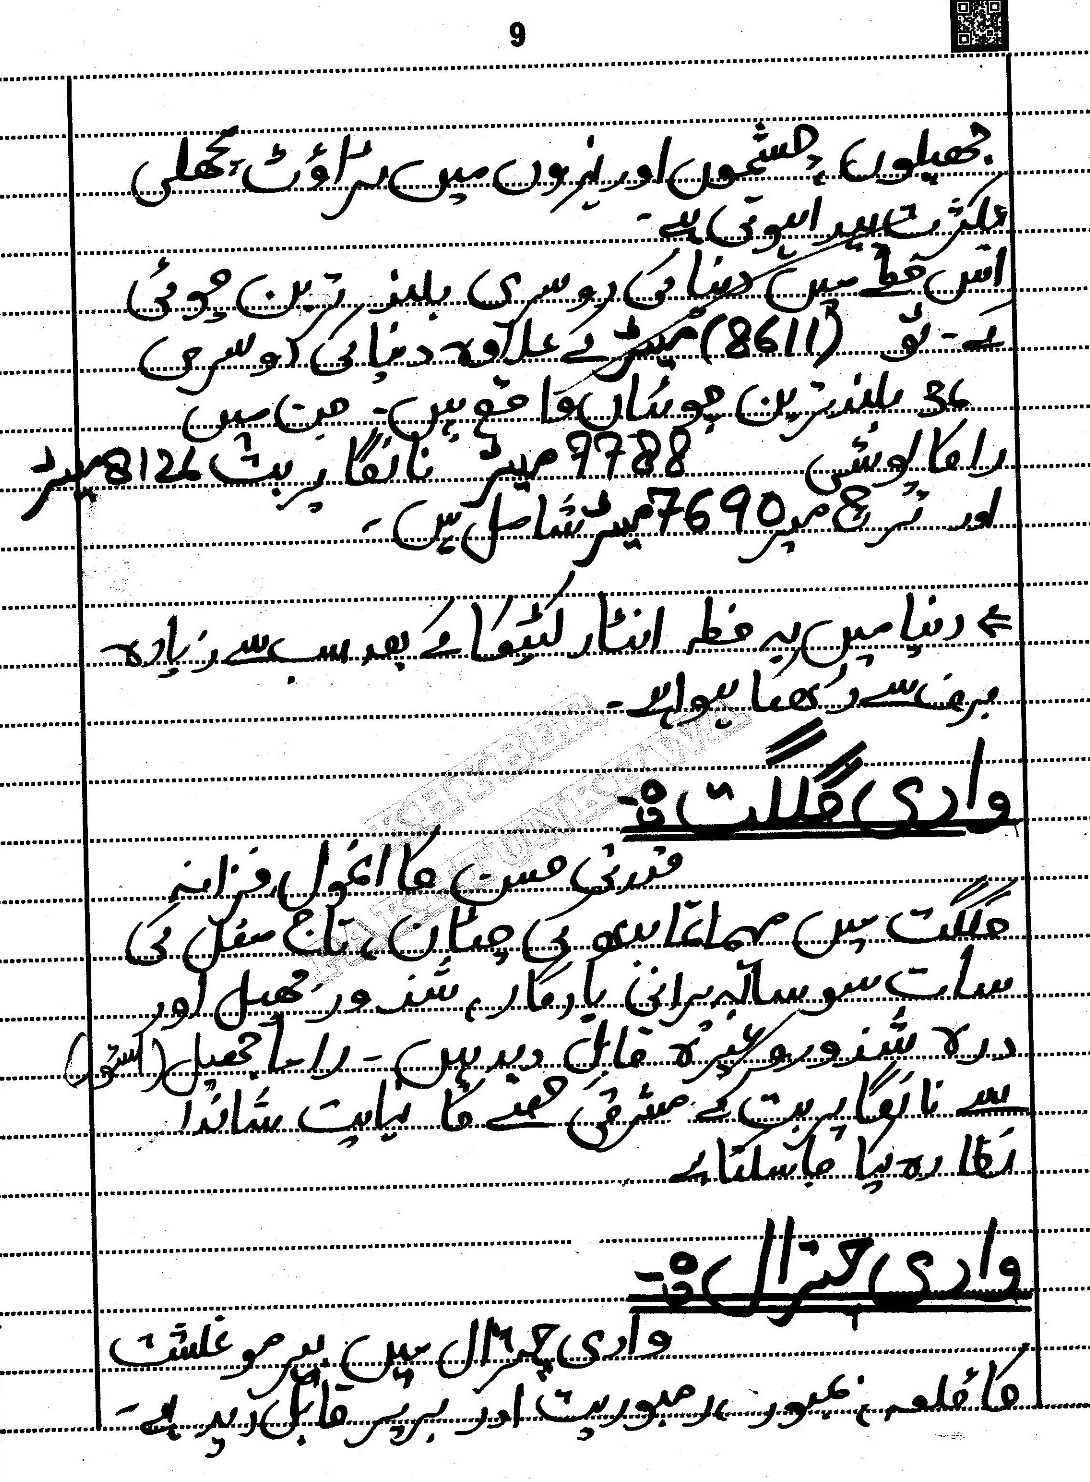 9
جھیلوں، چشموں اور نہروں میں ٹراؤٹ مچھلی
بکثرت پیدا ہوتی ہے۔
اس خطے میں دنیا کی دوسری بلند ترین چوٹی
کے۔ٹو (8611) میٹر کے علاوہ دنیا کی دوسری
36 بلند ترین چوٹیاں واقع ہیں۔ جن میں
راکاپوشی 7788 میٹر نانگا پربت 8126 میٹر
اور ترچ میر 7690 میٹر شامل ہیں۔
← دنیا میں یہ خطہ انٹارکٹیکا کے بعد سب سے زیادہ
برف سے ڈھکا ہوا ہے۔
وادی گلگت :-
قدرتی حسن کا انمول خزانہ
گلگت میں مہاتما بدھ کی چٹان، تاج مغل کی
سات سو سالہ پرانی یادگار، شندور جھیل اور
درہ شندور وغیرہ قابل دید ہیں۔ راما جھیل (استور)
سے نانگا پربت کے مشرقی حصے کا نہایت شاندا
نظارہ کیا جاسکتا ہے
وادی چترال :-
وادی چترال میں بیرموغلشت
کا قلعہ، بمبور، رمبوریت اور بریر قابل دید ہے۔
KHYBER
PAKHTUNKHWA